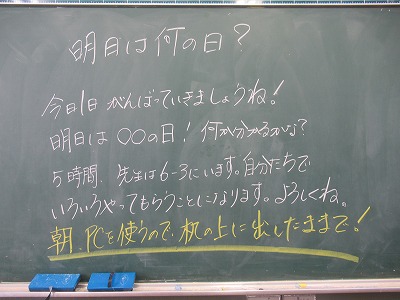 明日は何の日？
今日1日 がんばっていきましょうね！
明日は ○○の日！ 何か分かるかな？
5時間、先生は6-3にいます。自分たちで
いろいろやってもらうことになります。よろしくね。
朝、PCを使うので、机の上に出したままで！